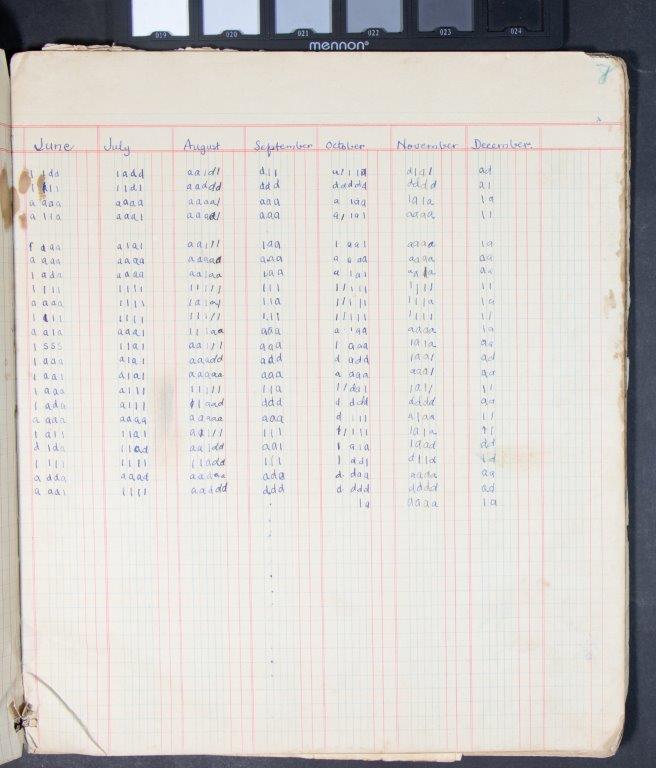 019 020 021 022 023 024
mennon®
8
June July August September October November December
1 1dd 1add aa1d1 d11 a/11a d1a1 ad
1 d11 11d1 aaddd ddd ddddd dddd a1
a aaa aaaa aaaa1 aaa a 1aa 1a1a 1a
a 11a aaa1 aaad1 aaa a/1a1 aaaa 11
daa a1a1 aa111 1aa 1 aa1 aaaa 1a
a aaa aaaa aaaad aaa a aaa aaaa aa
1 ada aaaa aa1aa 1aa a 1a1 aa1a aa
1 111 1111 11111 111 1/111 1111 11
a aaa 1111 1a1a1 11a 1/111 111a 1a
1 111 1111 11111 111 1/111 1111 11
a a1a aaa1 111aa aaa a 1aa aaaa 1a
1 sss 11a1 aa111 aaa 1 aaa 1a1a aa
1 aaa a1a1 aaadd add d add 1aa1 ad
1 aa1 d1a1 aaaaa aaa a aaa aaa1 aa
1 aaa a111 11111 11a 1/da1 1a11 11
1 ada a111 11aad ddd d ddd dddd aa
a aaa aaaa aaaaa aaa d 111 a1aa 11
1 a11 11a1 aa111 111 1/111 1a1a 11
d 1da 11ad aa1dd aa1 1 a1a 1aad dd
1 111 1111 11add 111 1 dd1 d11d 1d
a dda aaad aaaaa ada d daa aaaa aa
a aa1 1111 aaddd ddd d ddd dddd ad
1a aaaa 1a